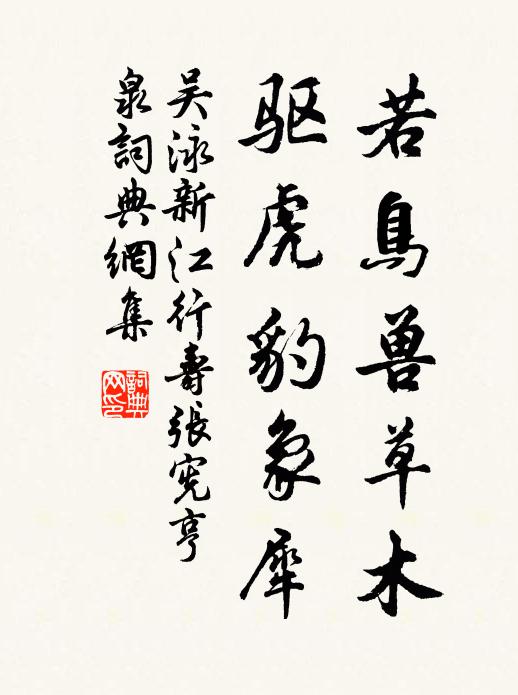 若鳥兽草木
驱虎豹象犀
吴泳新江行壽張宪亨
泉詞典網集
詞典网印